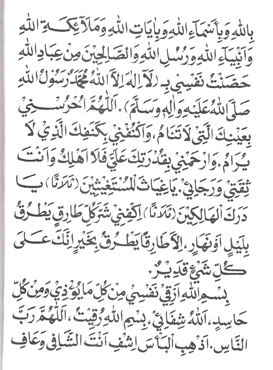 بِاللهِ وَبِأَسْمَآءِ اللهِ وَبِاٰيَاتِ اللهِ وَمَلَآئِكَةِ اللهِ
وَأَنْبِيَآءِ اللهِ وَرُسُلِ اللهِ وَالصَّالِحِيْنَ مِنْ عِبَادِ اللهِ
حَصَّنْتُ نَفْسِيْ بِـ (لَآ اِلٰهَ اِلَّا اللهُ مُحَمَّدٌ رَسُوْلُ اللهِ
صَلَّى اللهُ عَلَيْهِ وَاٰلِهِ وَسَلَّمَ). اَللّٰهُمَّ احْرُسْنِيْ
بِعَيْنِكَ الَّتِيْ لَا تَنَامُ. وَاكْنُفْنِيْ بِكَنَفِكَ الَّذِيْ لَا
يُرَامُ. وَارْحَمْنِيْ بِقُدْرَتِكَ عَلَيَّ فَلَا اَهْلِكُ وَاَنْتَ
ثِقَتِيْ وَرَجَائِيْ. يَاغِيَاثَ الْمُسْتَغِيْثِيْنَ (ثَلَاثًا) يَا
دَرَكَ الْهَالِكِيْنَ (ثَلَاثًا) اِكْفِنِيْ شَرَّ كُلِّ طَارِقٍ يَطْرُقُ
بِلَيْلٍ اَوْنَهَارٍ. اِلَّا طَارِقًا يَطْرُقُ بِخَيْرٍ اِنَّكَ عَلَى
كُلِّ شَيْءٍ قَدِيْرٌ.
بِسْمِ اللهِ اَرْقِيْ نَفْسِيْ مِنْ كُلِّ مَا يُؤْذِيْ وَمِنْ كُلِّ
حَاسِدٍ، اَللهُ شِفَائِيْ، بِسْمِ اللهِ رُقِيْتُ، اَللّٰهُمَّ رَبَّ
النَّاسِ. اَذْهِبِ الْبَأْسَ اِشْفِ اَنْتَ الشَّافِيْ وَعَافِ